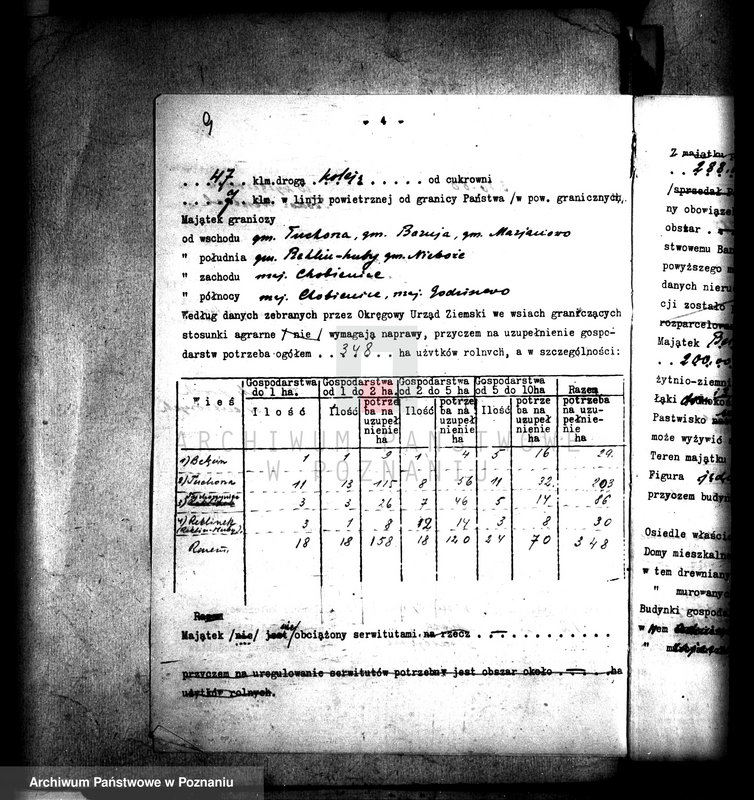 9
- 4 -
47 klm.drogą koleją od cukrowni
7 klm. w linji powietrznej od granicy Państwa /w pow. granicznych/.
Majątek graniczy
od wschodu gm. Tuchorza, gm. Boruja, gm.
" południa gm. gm.
" zachodu maj. Chobienice
" północy maj. Chobienice, maj. Godziszewo
Według danych zebranych przez Okręgowy Urząd Ziemski we wsiach graniczących
stosunki agrarne /nie/ wymagają naprawy, przyczem na uzupełnienie gospo-
darstw potrzeba ogółem 348 ha użytków rolnych, a w szczególności:
Wieś Gospodarstwa do 1 ha. Gospodarstwa od 1 do 2 ha. Gospodarstwa od 2 do 5 ha Gospodarstwa od 5 do 10ha Razem potrzeba na uzu- pełnie- nie ha
Ilość Ilość potrze ba na uzupeł nienie ha Ilość potrze ba na uzupeł nienie ha Ilość potrze ba na uzupeł nienie ha
1) 1 1 9 1 4 5 16 29
2) 11 13 115 8 56 11 32 203
3) 3 3 26 7 46 5 14 86
4) 3 1 8 12 14 3 8 30
Razem 18 18 158 18 120 24 70 348
Razem
Majątek /nie/ jest nie/ obciążony serwitutami na rzecz —
przyczem na uregulowanie serwitutów potrzebny jest obszar około — ha
użytków rolnych.
Z majątku
288.
/sprzedał
ny obowiąze
obszar
stwowemu Ban
powyższego m
danych nieru
cji zostało
rozparcelowa
Majątek
200,00
żytnio-ziemni
Łąki
Pastwisko
może wyżywić
Teren majątku
Figura
przyczem budyn
Osiedle właści
Domy mieszkaln
w tem drewnian
" murowanych
Budynki gospoda
w tem
" m
ARCHIWUM PAŃSTWOWE
W POZNANIU
Archiwum Państwowe w Poznaniu